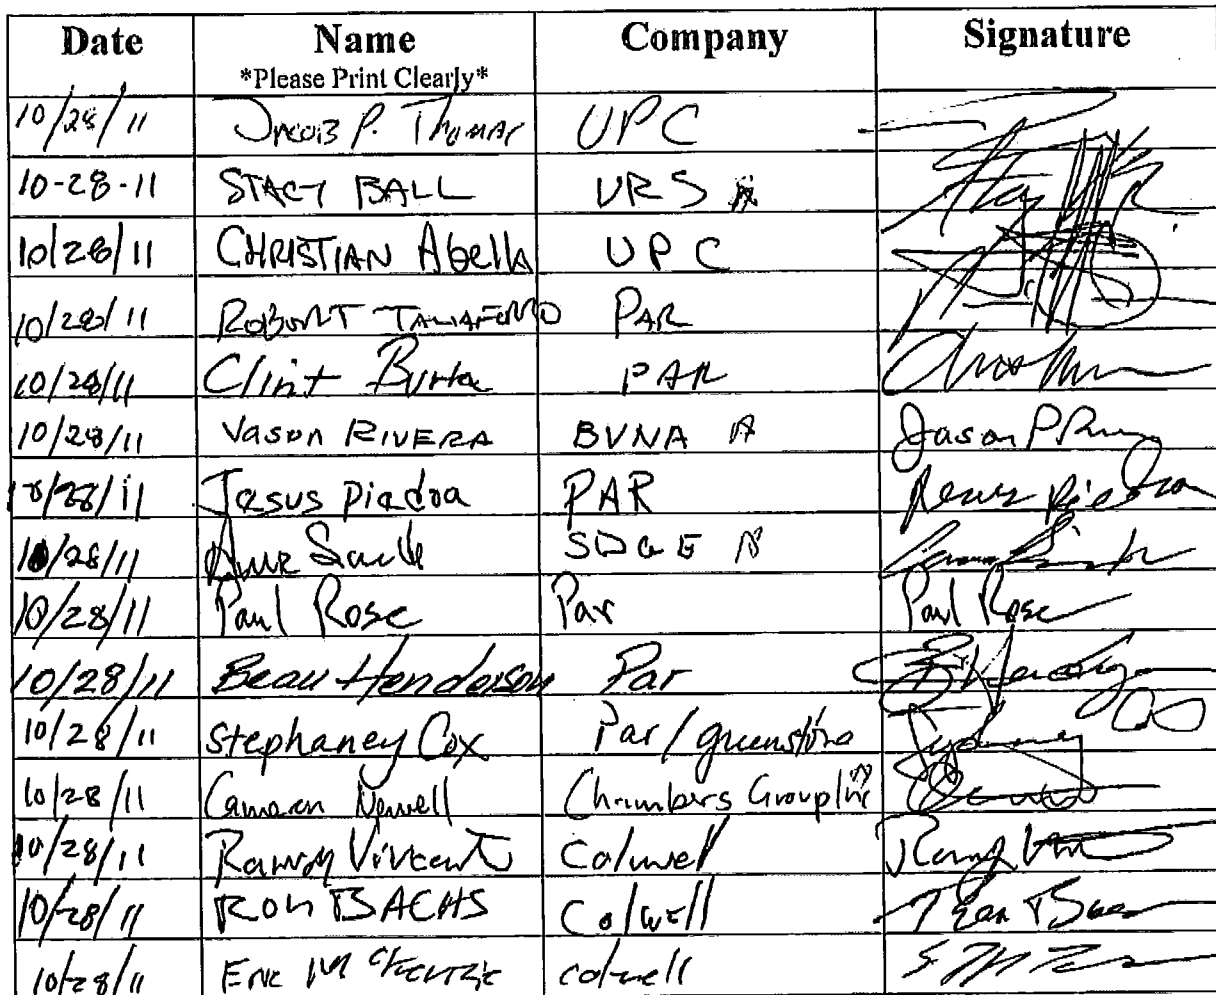 Date Name Company Signature
*Please Print Clearly*
10/28/11 Jacob P. Thomas UPC
10-28-11 STACY BALL URS A
10/28/11 CHRISTIAN Abella UPC
10/28/11 ROBERT TALIAFERRO PAR
10/28/11 Clint Burke PAR
10/28/11 Jason RIVERA BVNA A Jason P
10/28/11 Jesus Piedra PAR Jesus Piedra
10/28/11 SDGE
10/28/11 Paul Rose Par Paul Rose
10/28/11 Beau Henderson Par
10/28/11 Stephaney Cox Par/greenstone
10/28/11 Cameron Newell Chambers Group Inc
10/28/11 Randy Vincent Colwell
10/28/11 RON BACHS Colwell
10/28/11 Eric McKenzie colwell